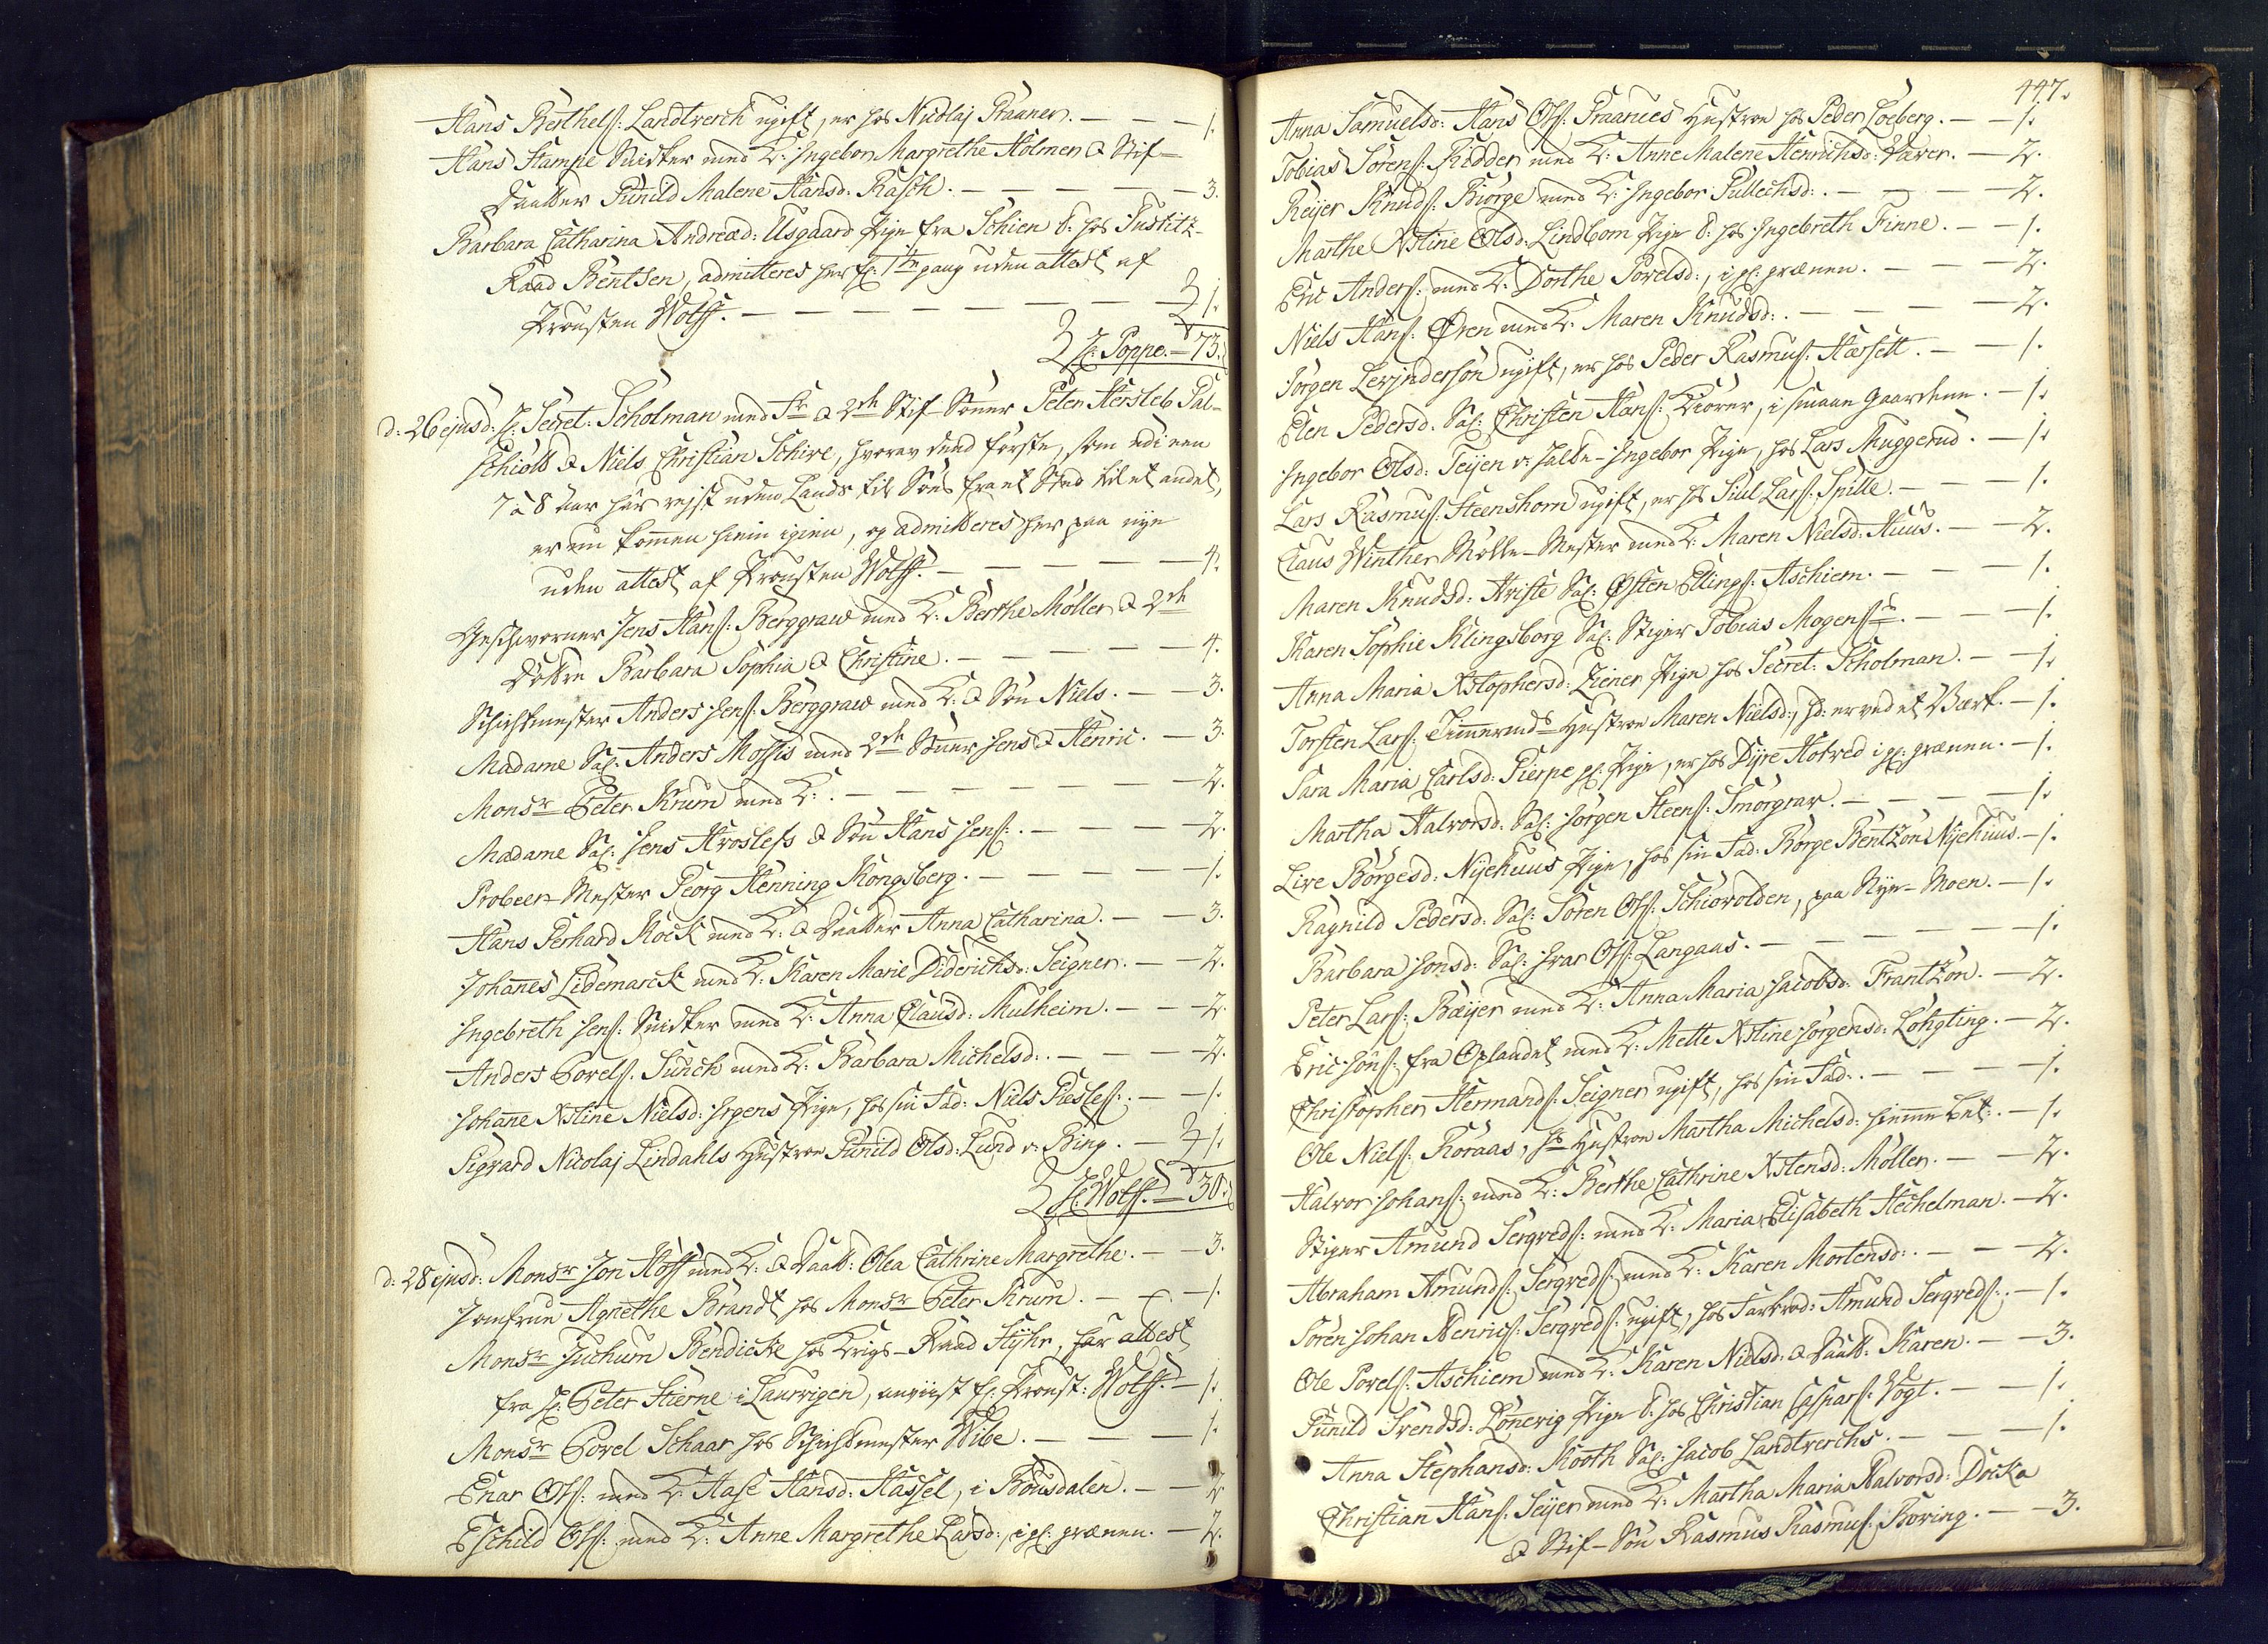 Hans Berthels: Landtverch ugift, er hos Nicolaj Praanes. — — — 1.
Hans Stampe Snidker med K: Ingebor Margrethe Holmen & Stif-
Daatter Gunild Malene Hansd: Rasch. — — — — — 3.
Barbara Catharina Andreæd: Usgaard Pige fra Schien t: hos Justitz-
Raad Bentsen, admitteres her f: 1te gang uden attest af
Prousten Wolff. — — — — — — — 1.
H: Poppe. — 73.
d: 26 ejusd: H: Secret: Scholman med Fr & 2de Stif-Sönner Peter Hersleb Pal-
schiold & Niels Christian Schive, hvorav dend förste, som udi een
7 à 8 aar har rejst uden Lands til Söes fra et Sted til et andet,
er nu kommen hiem igien, og admitteres her paa nye
uden attest af Prousten Wolff. — — — — — 4.
Geschworner Jens Hans: Berggraw med K: Berthe Möller & 2de
Döttre Barbara Sophia & Christine. — — — — — 4.
Schichtmester Anders Jens: Berggraw med K: & Sön Niels. — — 3.
Madame Sal: Anders Mossis med 2de Sönner Jens & Henric. — 3.
Monsr Peter Krum med K: — — — — — — — 2.
Madame Sal: Jens Krosless & Sön Hans Jens: — — — — 2.
Probeer-Mester Georg Henning Kongsberg. — — — — — 1.
Hans Gerhard Kock med K: & Daatter Anna Catharina. — — 3.
Johannes Lidemarck med K: Karen Marie Diderichsd: Seigner. — — 2.
Ingebreth Jens: Snidker med K: Anna Clausd: Mulheim. — — — 2.
Anders Povels: Sunch med K: Barbara Michelsd: — — — — 2.
Johanne Xstine Nielsd: Irgens Pige, hos sin Fad: Niels Giesles: — — 1.
Sigvard Nicolaj Lindahls Hustroe Gunild Olsd: Lund v: Bing. — 1.
H: Wolff. — 30.
d: 28 ejusd: Monsr Jon Hoff med K: & Daatt: Olea Cathrine Margrethe. — — 3.
Jomfrue Agnethe Brandt hos Monsr Peter Krum. — — — 1.
Monsr Juchum Bendicke hos Krigs-Raad Heyhr, har attest
fra H: Peter Stierne i Laurvigen, anviist f: Proust: Wolff. — 1.
Monsr Povel Schaar hos Schichtmester Wibe. — — — — 1.
Enar Ols: med K: Aase Hansd: Hassel, i Rousdalen. — — 2.
Eschild Ols: med K: Anne Margrethe Larsd: i gl: grænen. — 2.
447.
Anna Samuelsd: Hans Ols: Praanes Hustroe hos Peder Loeberg. — — 1.
Tobias Sörens: Ridder med K: Anne Malene Henrichsd: Værer. — 2.
Reyer Knuds: Biörge med K: Ingebor Gullechsd: — — — 2.
Marthe Xstine Olsd: Lindbom Pige t: hos Ingebreth Finne. — — 1.
Eric Anders: med K: Dorthe Povelsd:, i gl: grænen. — — — 2.
Niels Hans: Ören med K: Maren Knudsd: — — — — 2.
Jörgen Levinderson ugift, er hos Peder Rasmus: Harsett. — — 1.
Elen Pedersd: Sal: Christen Hans: Kiörer, i smaae gaardene. — 1.
Ingebor Olsd: Teyen v: halte-Ingebor Pige, hos Lars Muggerud. — 1.
Lars Rasmus: Steenshorn ugift, er hos Siul Lars: Spille. — — — 1.
Claus Winther Mölle-Mester med K: Maren Nielsd: Huus. — — 2.
Maren Knudsd: Hviste Sal: Östen Ellings: Aschiem. — — — 1.
Karen Sophie Klingsborg Sal: Stiger Tobias Mogens: — — 1.
Anna Maria Xstophersd: Ziener Pige hos Secret: Scholman. — — 1.
Torsten Lars: Timmermds Hustroe Maren Nielsd:, hd: er ved et Værk. — 1.
Sara Maria Carlsd: Pierpe gl: Pige, er hos Dyre Hotved i gl: grænen. — 1.
Martha Halvorsd: Sal: Jörgen Steens: Smörgrav. — — — — 1.
Live Börgesd: Nyehuus Pige, hos sin Fad: Börge Bentzon Nyehuus. — 1.
Ragnild Pedersd: Sal: Sören Ols: Schiovolden, paa Nye-Moen. — 1.
Barbara Jonsd: Sal: Ivar Ols: Langaas. — — — — — 1.
Peter Lars: Bæyer med K: Anna Maria Jacobsd: Frantzon. — 2.
Eric Jöns: fra Oplandet med K: Mette Xstine Jörgensd: Löhgting. — 2.
Christopher Hermands: Seigner ugift, hos sin Fad: — — — 1.
Ole Niels: Roraas, hs Hustroe Martha Michelsd: hiemme bet: — 1.
Halvor Johans: med K: Berthe Cathrine Xstensd: Möller. — — 2.
Stiger Amund Sergveds: med K: Maria Elisabeth Hechelman. — 2.
Abraham Amunds: Sergveds: med K: Karen Mortensd: — — — 2.
Sören Johan Henrics: Sergveds: ugift, hos Farbrod: Amund Sergveds: — 1.
Ole Povels: Aschiem med K: Karen Nielsd: & Daatt: Karen. — — 3.
Gunild Svendsd: Lönevig Pige t: hos Christian Caspars: Vogt. — — 1.
Anna Stephansd: Kooth Sal: Jacob Landtverchs. — — — 1.
Christian Hans: Seyer med K: Martha Maria Halvorsd: Docka
& Stif-Sön Rasmus Rasmus: Boring. — — 3.